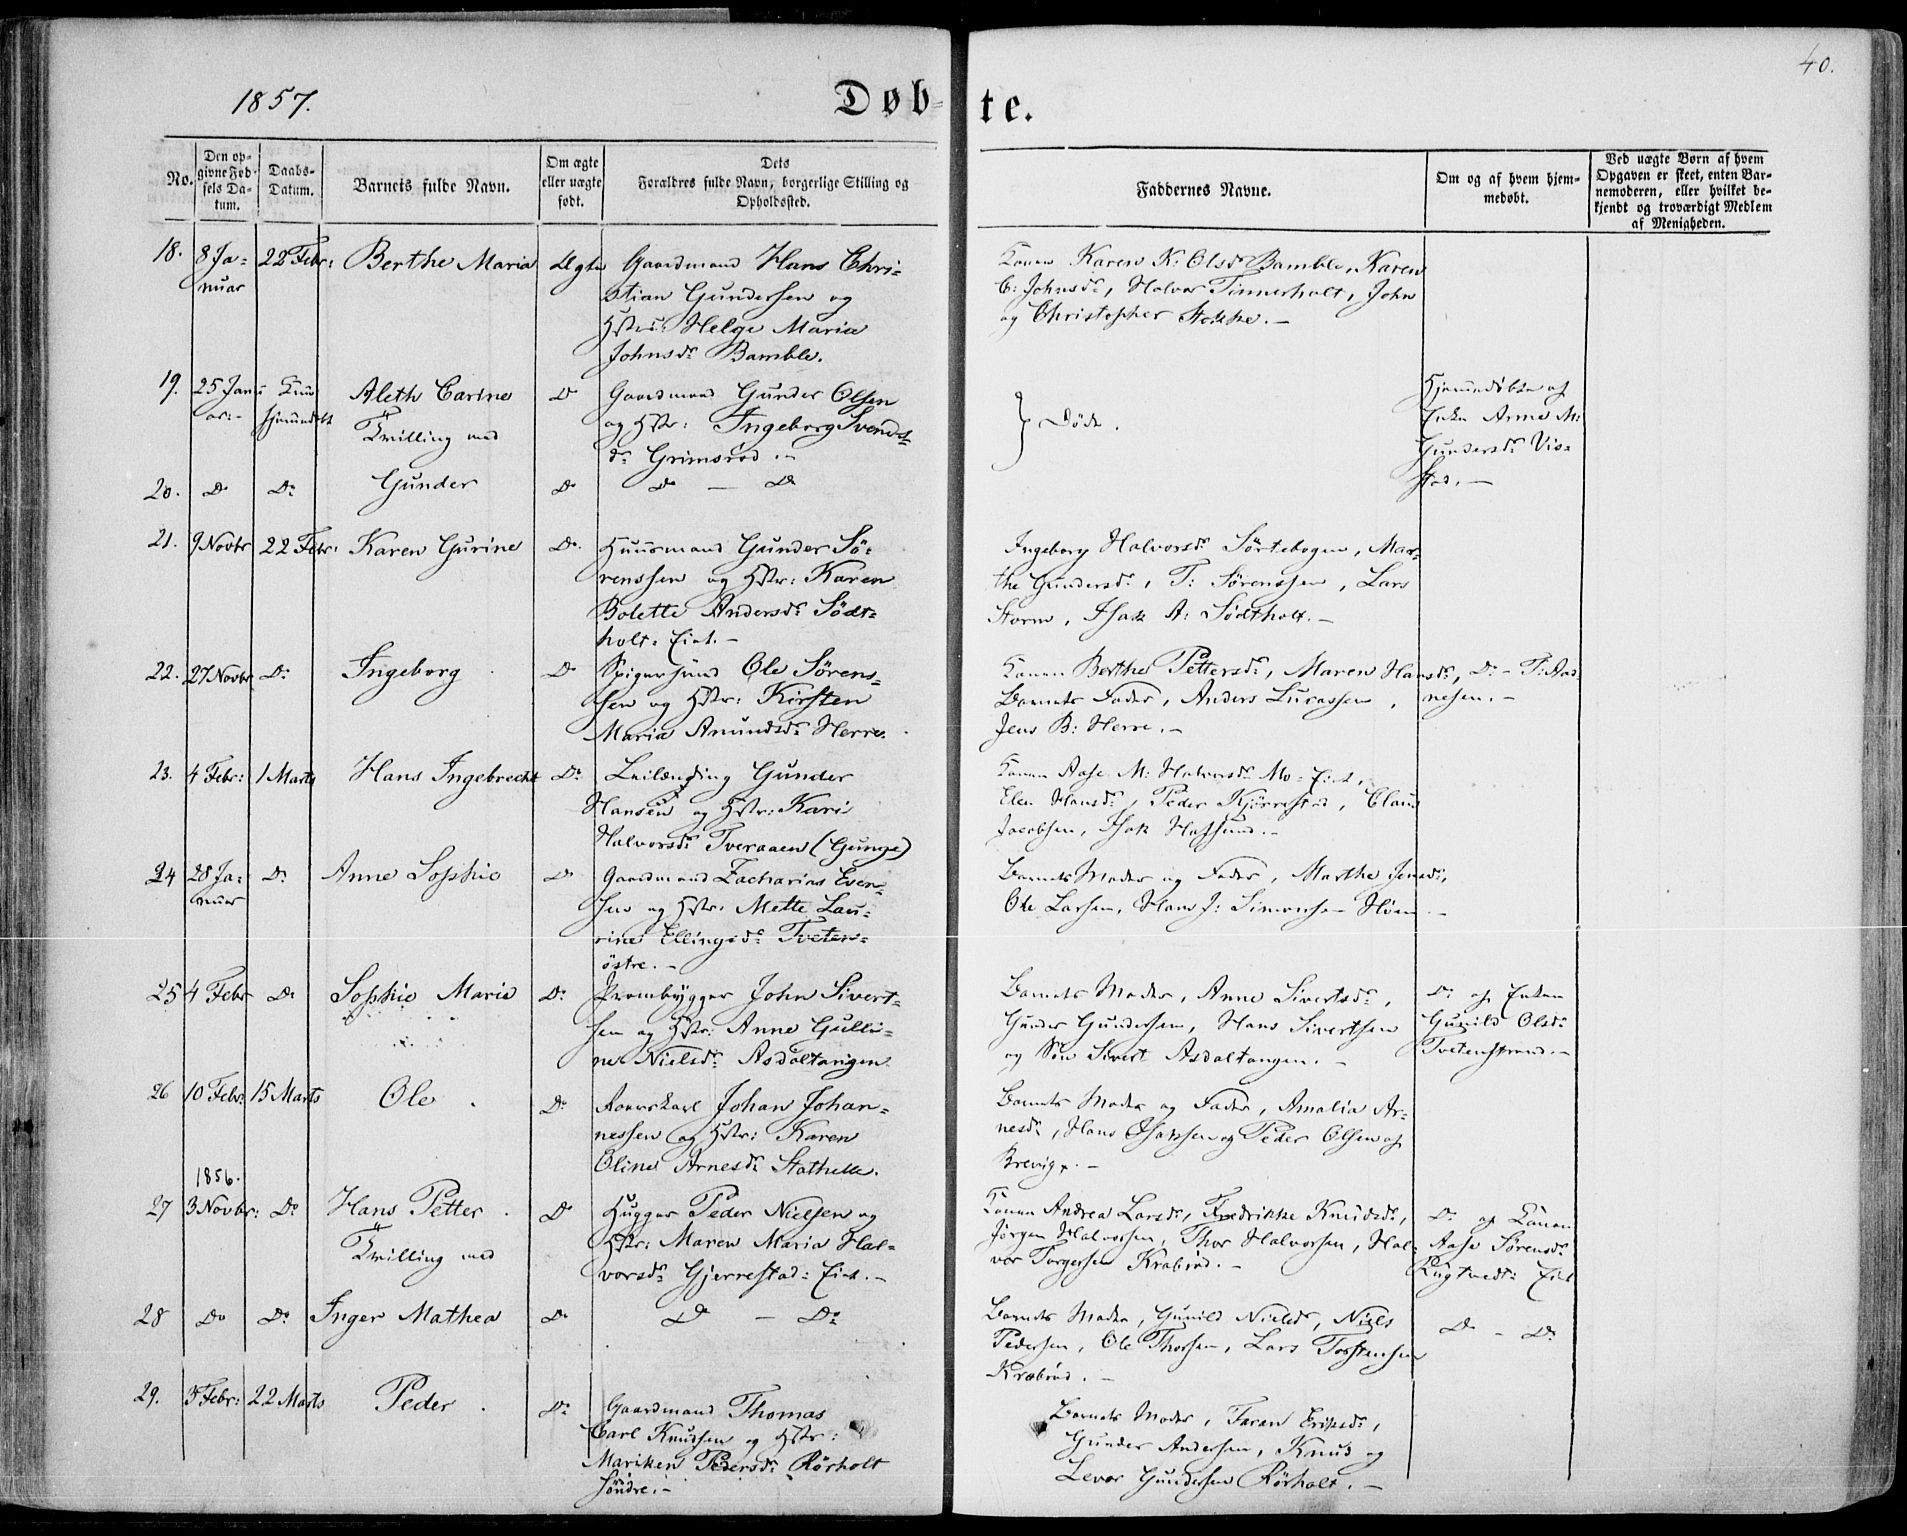 1857.
Døb-
te.
40.
No.
Den op-
givne Fød-
sels Da-
tum.
Daabs-
Datum.
Barnets fulde Navn.
Om ægte
eller uægte
født.
Dets
Forældres fulde Navn, borgerlige Stilling og
Opholdssted.
Faddernes Navne.
Om og af hvem hjem-
medøbt.
Ved uægte Børn af hvem
Opgaven er skeet, enten Bar-
nemoderen, eller hvilket be-
kjendt og troværdigt Medlem
af Menigheden.
18.
8 Ja-
nuar
22 Febr:
Berthe Maria
Ægte
Gaardmand Hans Chri-
stian Gundersen og
Hstr: Helge Maria
Johnsdr Bamble.
Konen Karen K. Olsdr Bamble, Karen
C: Johnsdr, Halvor Tinnerholt, John
og Christopher Stokke.-
19.
25 Janu
ar:-
Kun
hjemmedøbt
Aleth Carine
Tvilling med
Do
Gaardmand Gunder Olsen
og Hstr: Ingeborg Svends-
dr Grimsrød.-
Døde.
Hjemmedøbte af
Enke Anne M:
Gundersdr Vis-
stad.-
20.
Do
Do
Gunder
Do
Do - Do
21.
9 Novbr
22 Febr:
Karen Gurine
Do.
Huusmand Gunder Sö-
renssen og Hstr: Karen
Bolette Andersdr Södt-
holt. Eid.-
Ingeborg Halvorsdr Sörtebogen, Mar-
the Gundersdr, T: Sörenssen, Lars
Storm, Isak A: Södtholt.-
22.
27 Novbr
Do
Ingeborg
Do
Spigersmed Ole Sörens-
sen og Hstr: Kirsten
Maria Amundsdr Herre.
Konen Berthe Pettersdr, Maren Hansdr,
Barnets Fader, Anders Lucassen,
Jens B: Herre.-
Do - T: Aad-
nesen.-
23.
4 Febr:
1 Marts
Hans Ingebrecht
Do
Leilænding Gunder
Hansen og Hstr: Kari
Halvorsdr Tveraaen (Gunge)
Konen Aase M: Halvorsdr Mo- Eid,
Elen Hansdr, Peder Kjörrestad, Claus
Jacobsen, Isak Hafsund.-
24
28 Ja-
nuar
Do
Anne Sophie
Do
Gaardmand Zacharias Even-
sen og Hstr: Mette Lau-
rine Ellingsdr Tveten-
östre.-
Barnets Moder og Fader, Marthe Jensdr,
Ole Larsen, Hans J: Simonsen Höen.-
25
4 Febr
Do
Sophie Marie
Do
Prambygger John Sivert-
sen og Hstr: Anne Gulli-
ne Nielsdr Asdaltangen.
Barnets Moder, Anne Sivertsdr,
Gunder Gundersen, Hans Sivertsen
og Sön Sivert Asdaltangen.-
Do af Enken
Gunild Olsdr
Tvetenstrand.-
26
10 Febr:
15 Marts
Ole
Do
Roerskarl Johan Johan-
nessen og Hstr: Karen
Oline Arnesdr Stathelle.
Barnets Moder og Fader, Amalia Ar-
nesdr, Hans Isaksen og Peder Olsen af
Brevig.-
1856.
27
3 Novbr:
Do
Hans Petter
Tvilling med
Do
Hugger Peder Nielsen og
Hstr: Maren Maria Hal-
vorsdr Gjerrestad: Eid.-
Konen Andrea Larsdr, Fredrikke Knudsdr,
Jörgen Halvorsen, Thor Halvorsen, Hal-
vor Torgersen Krabröd.-
Do af Konen
Aase Sörensdr
Rugtvedt: Eid
28
Do
Do
Inger Mathea
Do
Do - Do
Barnets Moder, Gunild Nielsdr, Niels
Pedersen, Ole Thorsen, Lars Torstensen
Krabröd.-
Do - Do
29.
3 Febr:
22 Marts
Peder
Do
Gaardmand Thomas
Carl Knudsen og Hstr:
Mariken Pedersdr Rörholt
söndre.-
Barnets Moder, Taran Eriksdr,
Gunder Andersen, Knud og
Levor Gundersen Rörholt.-